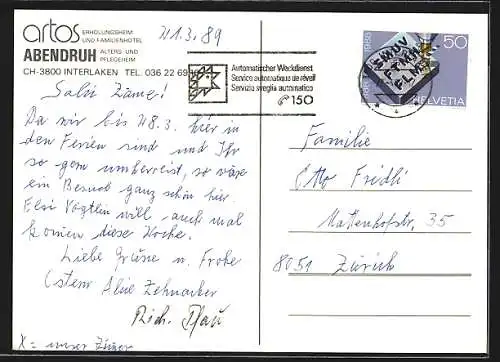 artos ERHOLUNGSHEIM
UND FAMILIENHOTEL
ABENDRUH ALTERS- UND
PFLEGEHEIM
CH-3800 INTERLAKEN TEL. 036 22 69
21.3.89
Automatischer Weckdienst
Service automatique de réveil
Servizio sveglia automatico
150
50
HELVETIA
Salü Zäme!
Da wir bis 28.3. hier in
den Ferien sind und Ihr
so gern umherreist, so wäre
ein Besuch ganz schön hier.
Elsi Vögtlin will auch mal
kommen diese Woche.
Liebe Grüsse u. Frohe
Ostern
Familie
Otto Fridli
Mattenhofstr. 35
8051 Zürich
X = unser Zimmer